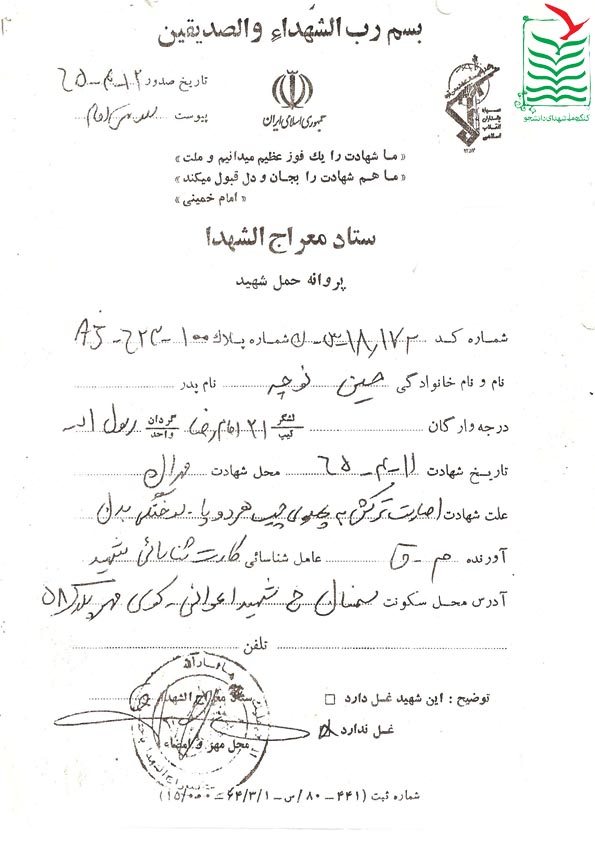 بسم رب الشهداء والصدیقین
تاریخ صدور ۱۲-۴-۶۵
پیوست
جمهوری اسلامی ایران
سپاه پاسداران انقلاب اسلامی
کنگره ملی شهدای دانشجو
« ما شهادت را یك فوز عظیم میدانیم و ملت »
« ما هم شهادت را بجان و دل قبول میکند »
« امام خمینی »
ستاد معراج الشهدا
پروانه حمل شهید
شماره کد ۱۸,۱۷۲-س-ك شماره پلاك ۱۰۰-۶۲۳- AJ
نام و نام خانوادگی حسین نوچه نام پدر
درجه و ارگان لشگر تیپ ۲۱ امام رضا گردان واحد رسول ا...
تاریخ شهادت ۱۱-۴-۶۵ محل شهادت مهران
علت شهادت اصابت ترکش به پهلوی چپ هر دو پا - سوختگی بدن
آورنده م-ق عامل شناسائی کارت شناسائی شهید
آدرس محل سکونت سمنان خ شهید اعوانی - کوی مهر پلاك ۵۸
تلفن
توضیح : این شهید غسل دارد
غسل ندارد
ستاد معراج الشهدا
محل مهر و امضاء
شماره ثبت (۴۴۱-۸۰/س-۶۴/۳/۱-۱۵/۰۰۰)